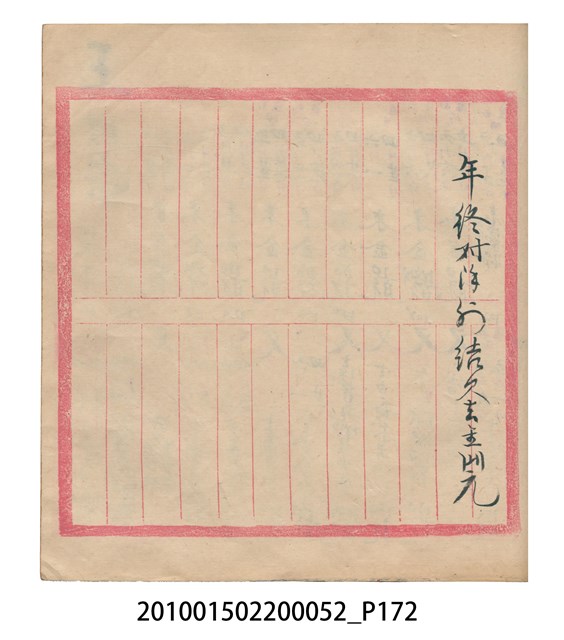 年終對除外結欠去主洲元
201001502200052_P172